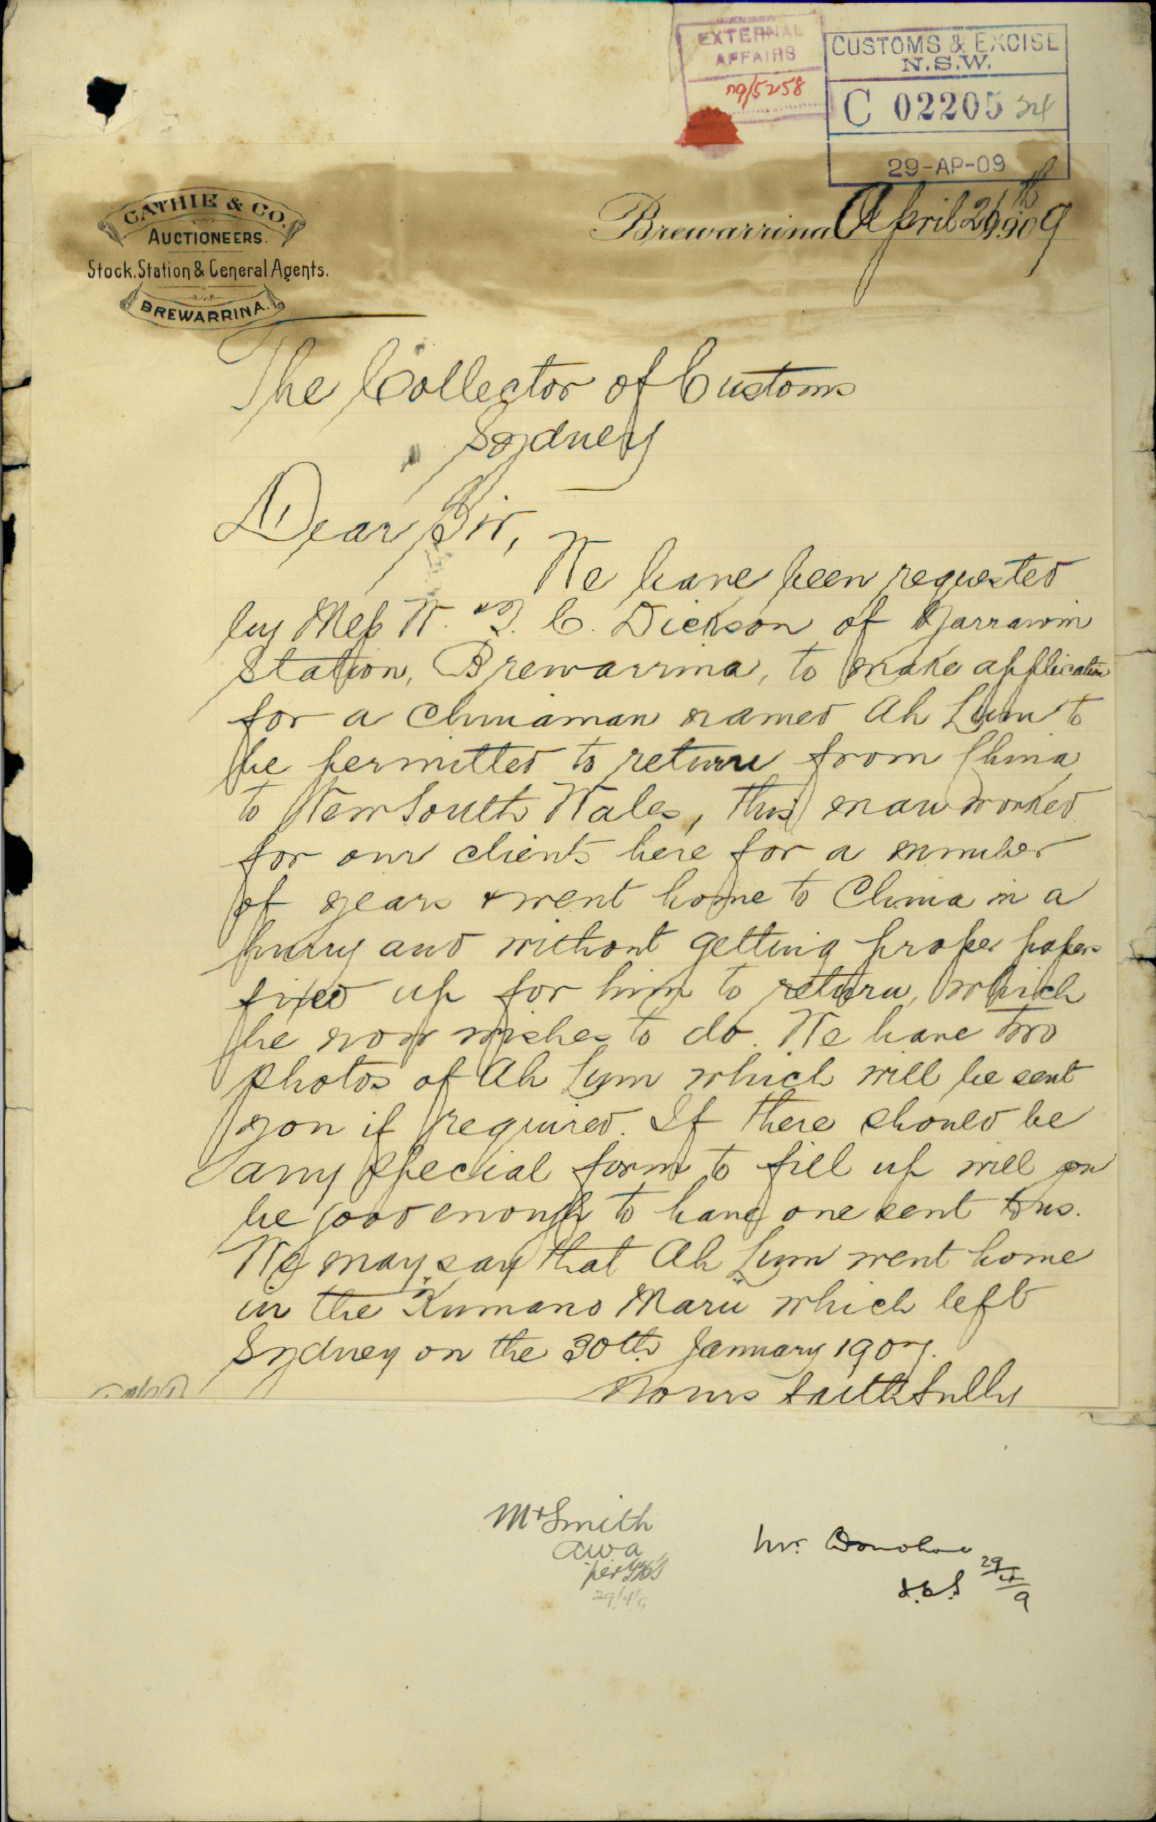 EXTERNAL
AFFAIRS
09/5258
CUSTOMS & EXCISE
N.S.W.
C 02205
29-AP-09
CATHIE & CO.
AUCTIONEERS.
Stock, Station & General Agents.
BREWARRINA.
Brewarrina April 26th 1909
The Collector of Customs
Sydney
Dear Sir,
We have been requested
by Mess W. & J. C. Dickson of Yarrawin
Station, Brewarrina, to make application
for a Chinaman named Ah Lum to
be permitted to return from China
to New South Wales, this man worked
for our clients here for a number
of years & went home to China in a
hurry and without getting proper papers
fixed up for him to return, which
he now wishes to do. We have two
photos of Ah Lym which will be sent
you if required. If there should be
any special form to fill up will you
be good enough to have one sent to us.
We may say that Ah Lym went home
in the Kumano Maru which left
Sydney on the 30th January 1907.
Yours faithfully
Mr Smith
awa
per
29/4/9
Mr. Donohoe
29/4/9